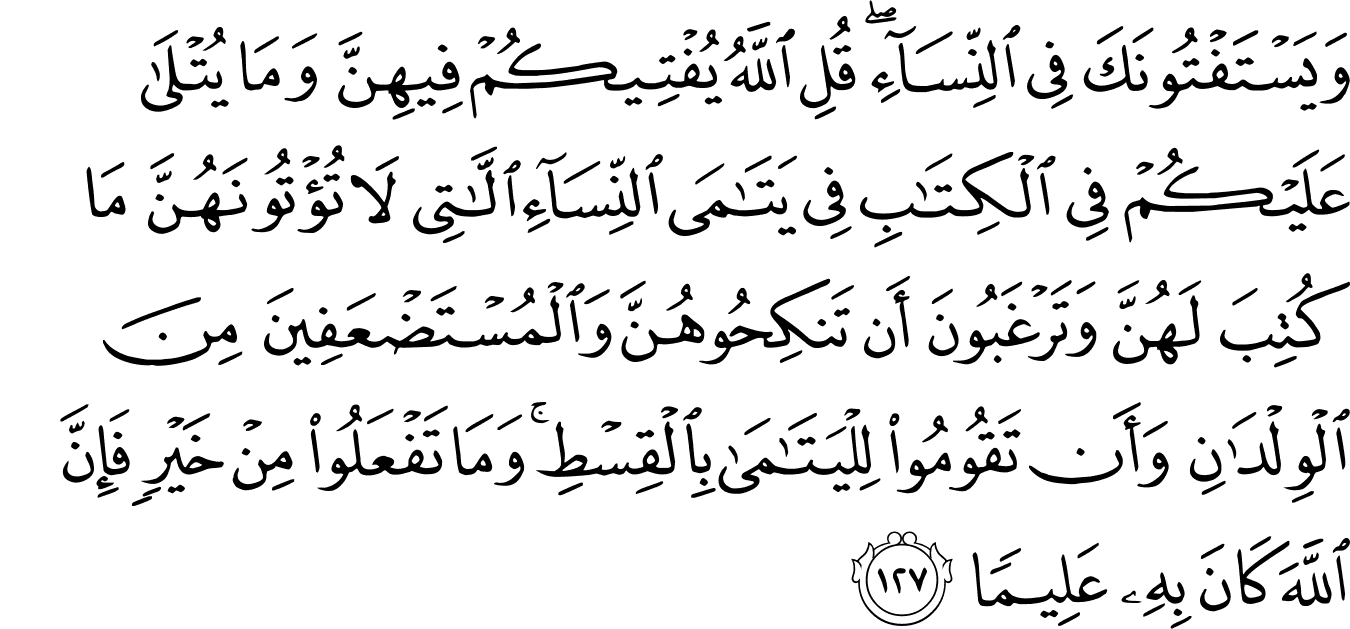 وَيَسۡتَفۡتُونَكَ فِي ٱلنِّسَآءِۖ قُلِ ٱللَّهُ يُفۡتِيكُمۡ فِيهِنَّ وَمَا يُتۡلَىٰ
عَلَيۡكُمۡ فِي ٱلۡكِتَٰبِ فِي يَتَٰمَى ٱلنِّسَآءِ ٱلَّٰتِي لَا تُؤۡتُونَهُنَّ مَا
كُتِبَ لَهُنَّ وَتَرۡغَبُونَ أَن تَنكِحُوهُنَّ وَٱلۡمُسۡتَضۡعَفِينَ مِنَ
ٱلۡوِلۡدَٰنِ وَأَن تَقُومُواْ لِلۡيَتَٰمَىٰ بِٱلۡقِسۡطِۚ وَمَا تَفۡعَلُواْ مِنۡ خَيۡرٖ فَإِنَّ
ٱللَّهَ كَانَ بِهِۦ عَلِيمٗا ١٢٧